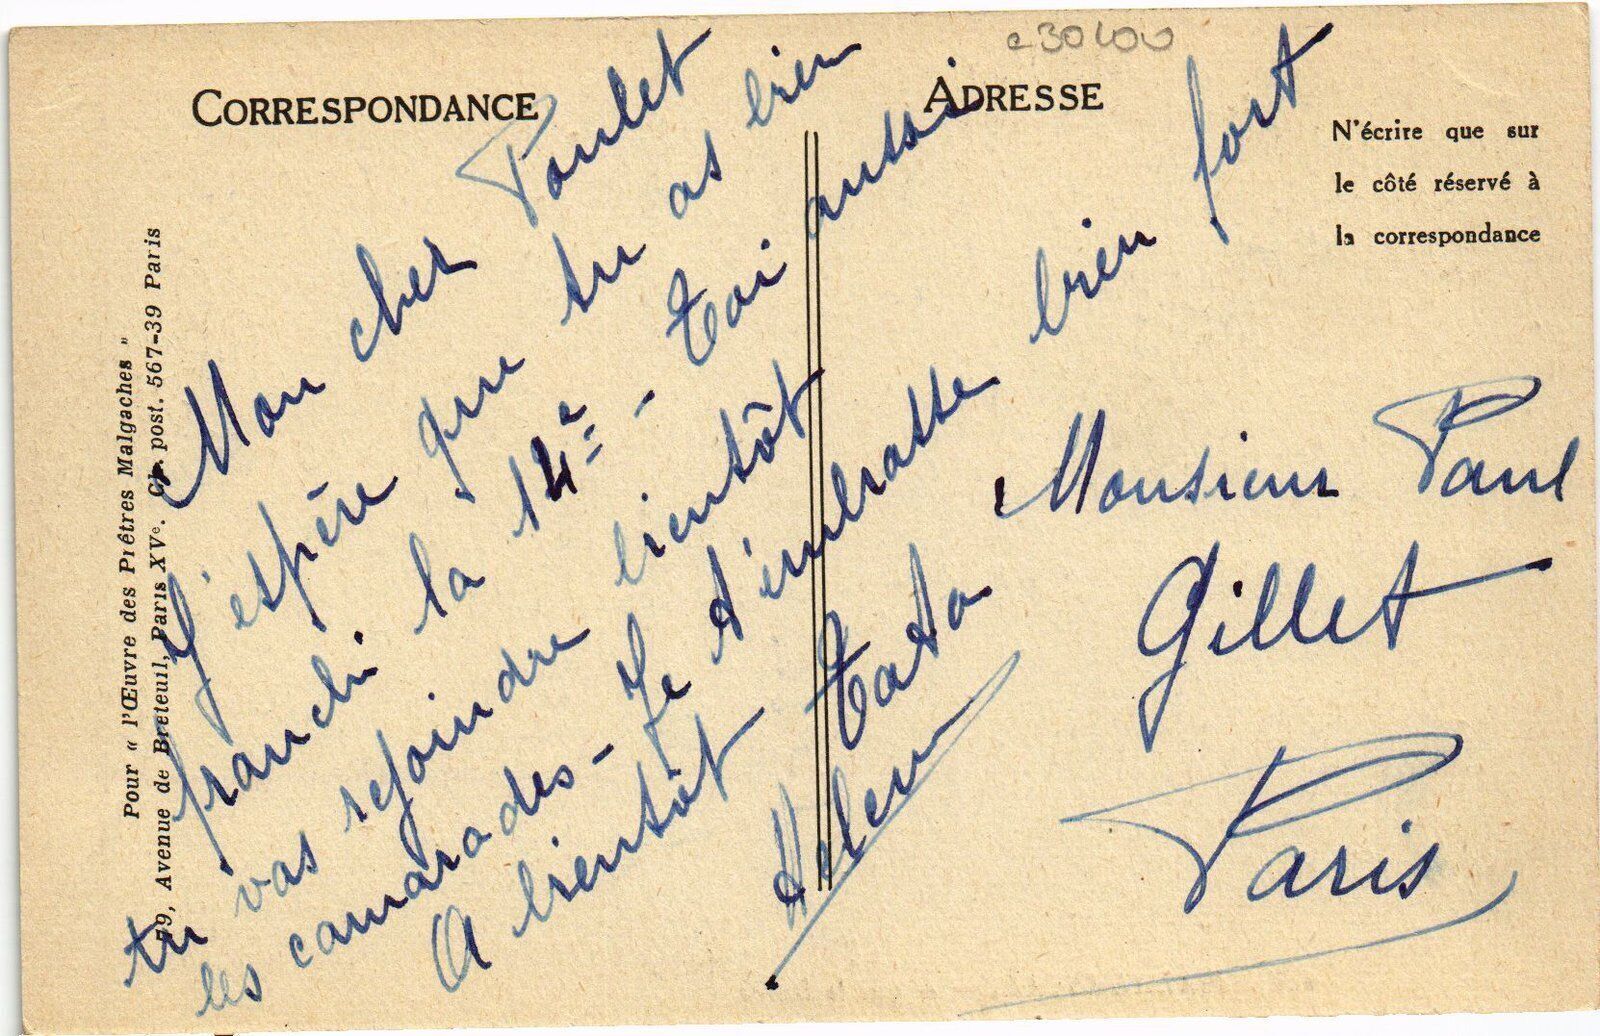 c30400
CORRESPONDANCE
ADRESSE
N'écrire que sur
le côté réservé à
la correspondance
Pour " l'Œuvre des Prêtres Malgaches "
59, Avenue de Breteuil, Paris XVe. Ch. post. 567-39 Paris
Mon cher Poulet
J'espère que tu as bien
franchi la 14e - Toi aussi
tu vas rejoindre bientôt
les camarades - Je t'embrasse bien fort
A bientôt Tata
Helen
Monsieur Paul
Gillet
Paris